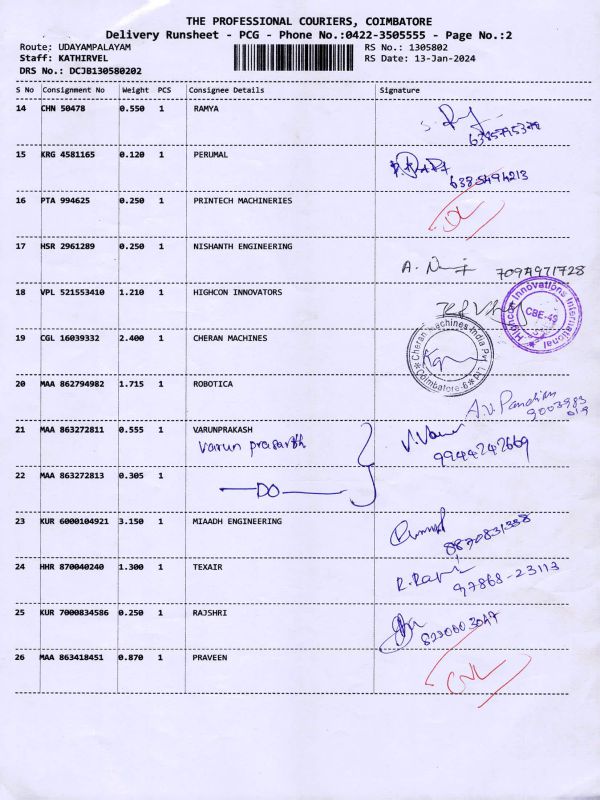 THE PROFESSIONAL COURIERS, COIMBATORE
Delivery Runsheet - PCG - Phone No.:0422-3505555 - Page No.:2
Route: UDAYAMPALAYAM RS No.: 1305802
Staff: KATHIRVEL RS Date: 13-Jan-2024
DRS No.: DCJB130580202
S No Consignment No Weight PCS Consignee Details Signature
14 CHN 50478 0.550 1 RAMYA
15 KRG 4581165 0.120 1 PERUMAL
6385494213
16 PTA 994625 0.250 1 PRINTECH MACHINERIES
17 HSR 2961289 0.250 1 NISHANTH ENGINEERING
7094971728
18 VPL 521553410 1.210 1 HIGHCON INNOVATORS
Highcon Innovations International
CBE-49
19 CGL 16039332 2.400 1 CHERAN MACHINES
Cheran Machines India Pvt Ltd
Coimbatore-6
20 MAA 862794982 1.715 1 ROBOTICA
A.V. Pandian
9003983
019
21 MAA 863272811 0.555 1 VARUNPRAKASH
Varun prakash
9944242669
22 MAA 863272813 0.305 1
DO
23 KUR 6000104921 3.150 1 MIAADH ENGINEERING
8870831358
24 HHR 870040240 1.300 1 TEXAIR
97868-23113
25 KUR 7000834586 0.250 1 RAJSHRI
8220603047
26 MAA 863418451 0.870 1 PRAVEEN